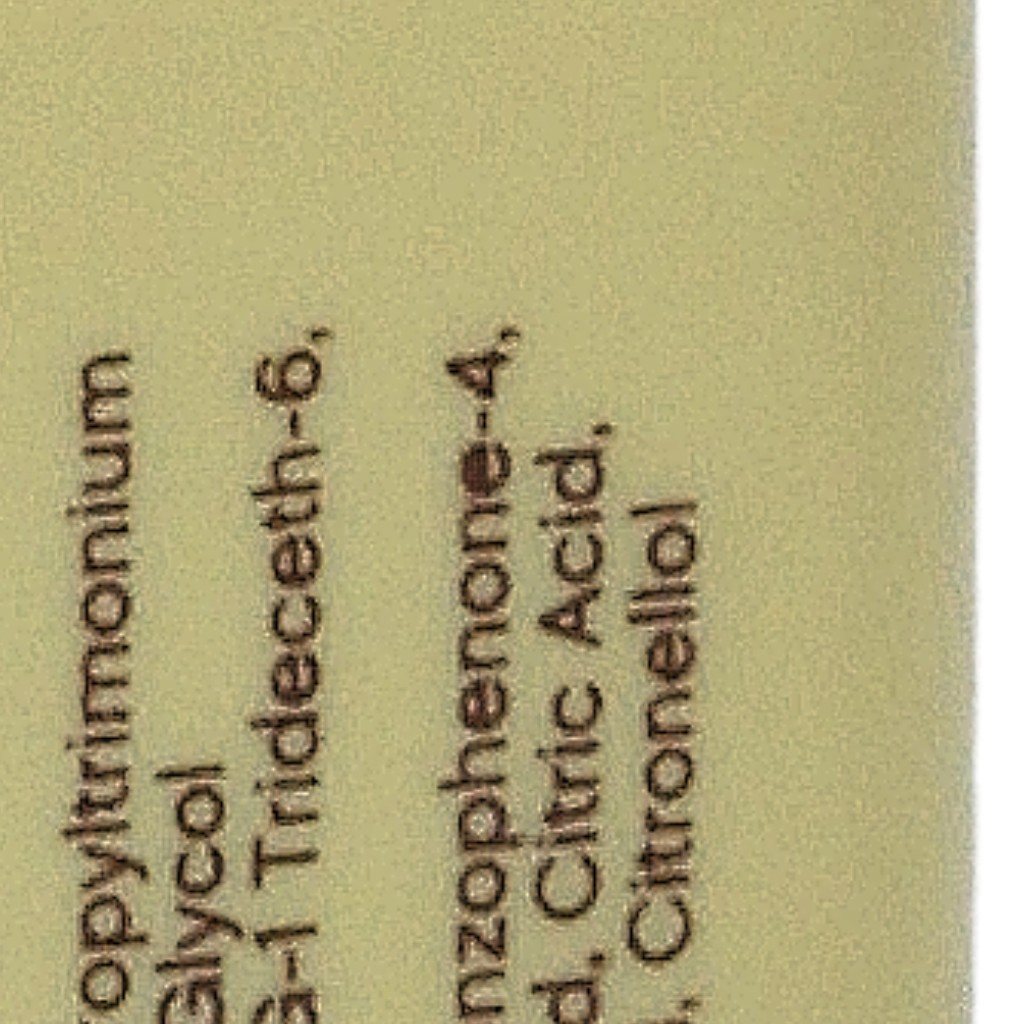 ropyltrimonium
Glycol
G-1 Trideceth-6,
nzophenone-4,
d, Citric Acid,
, Citronellol